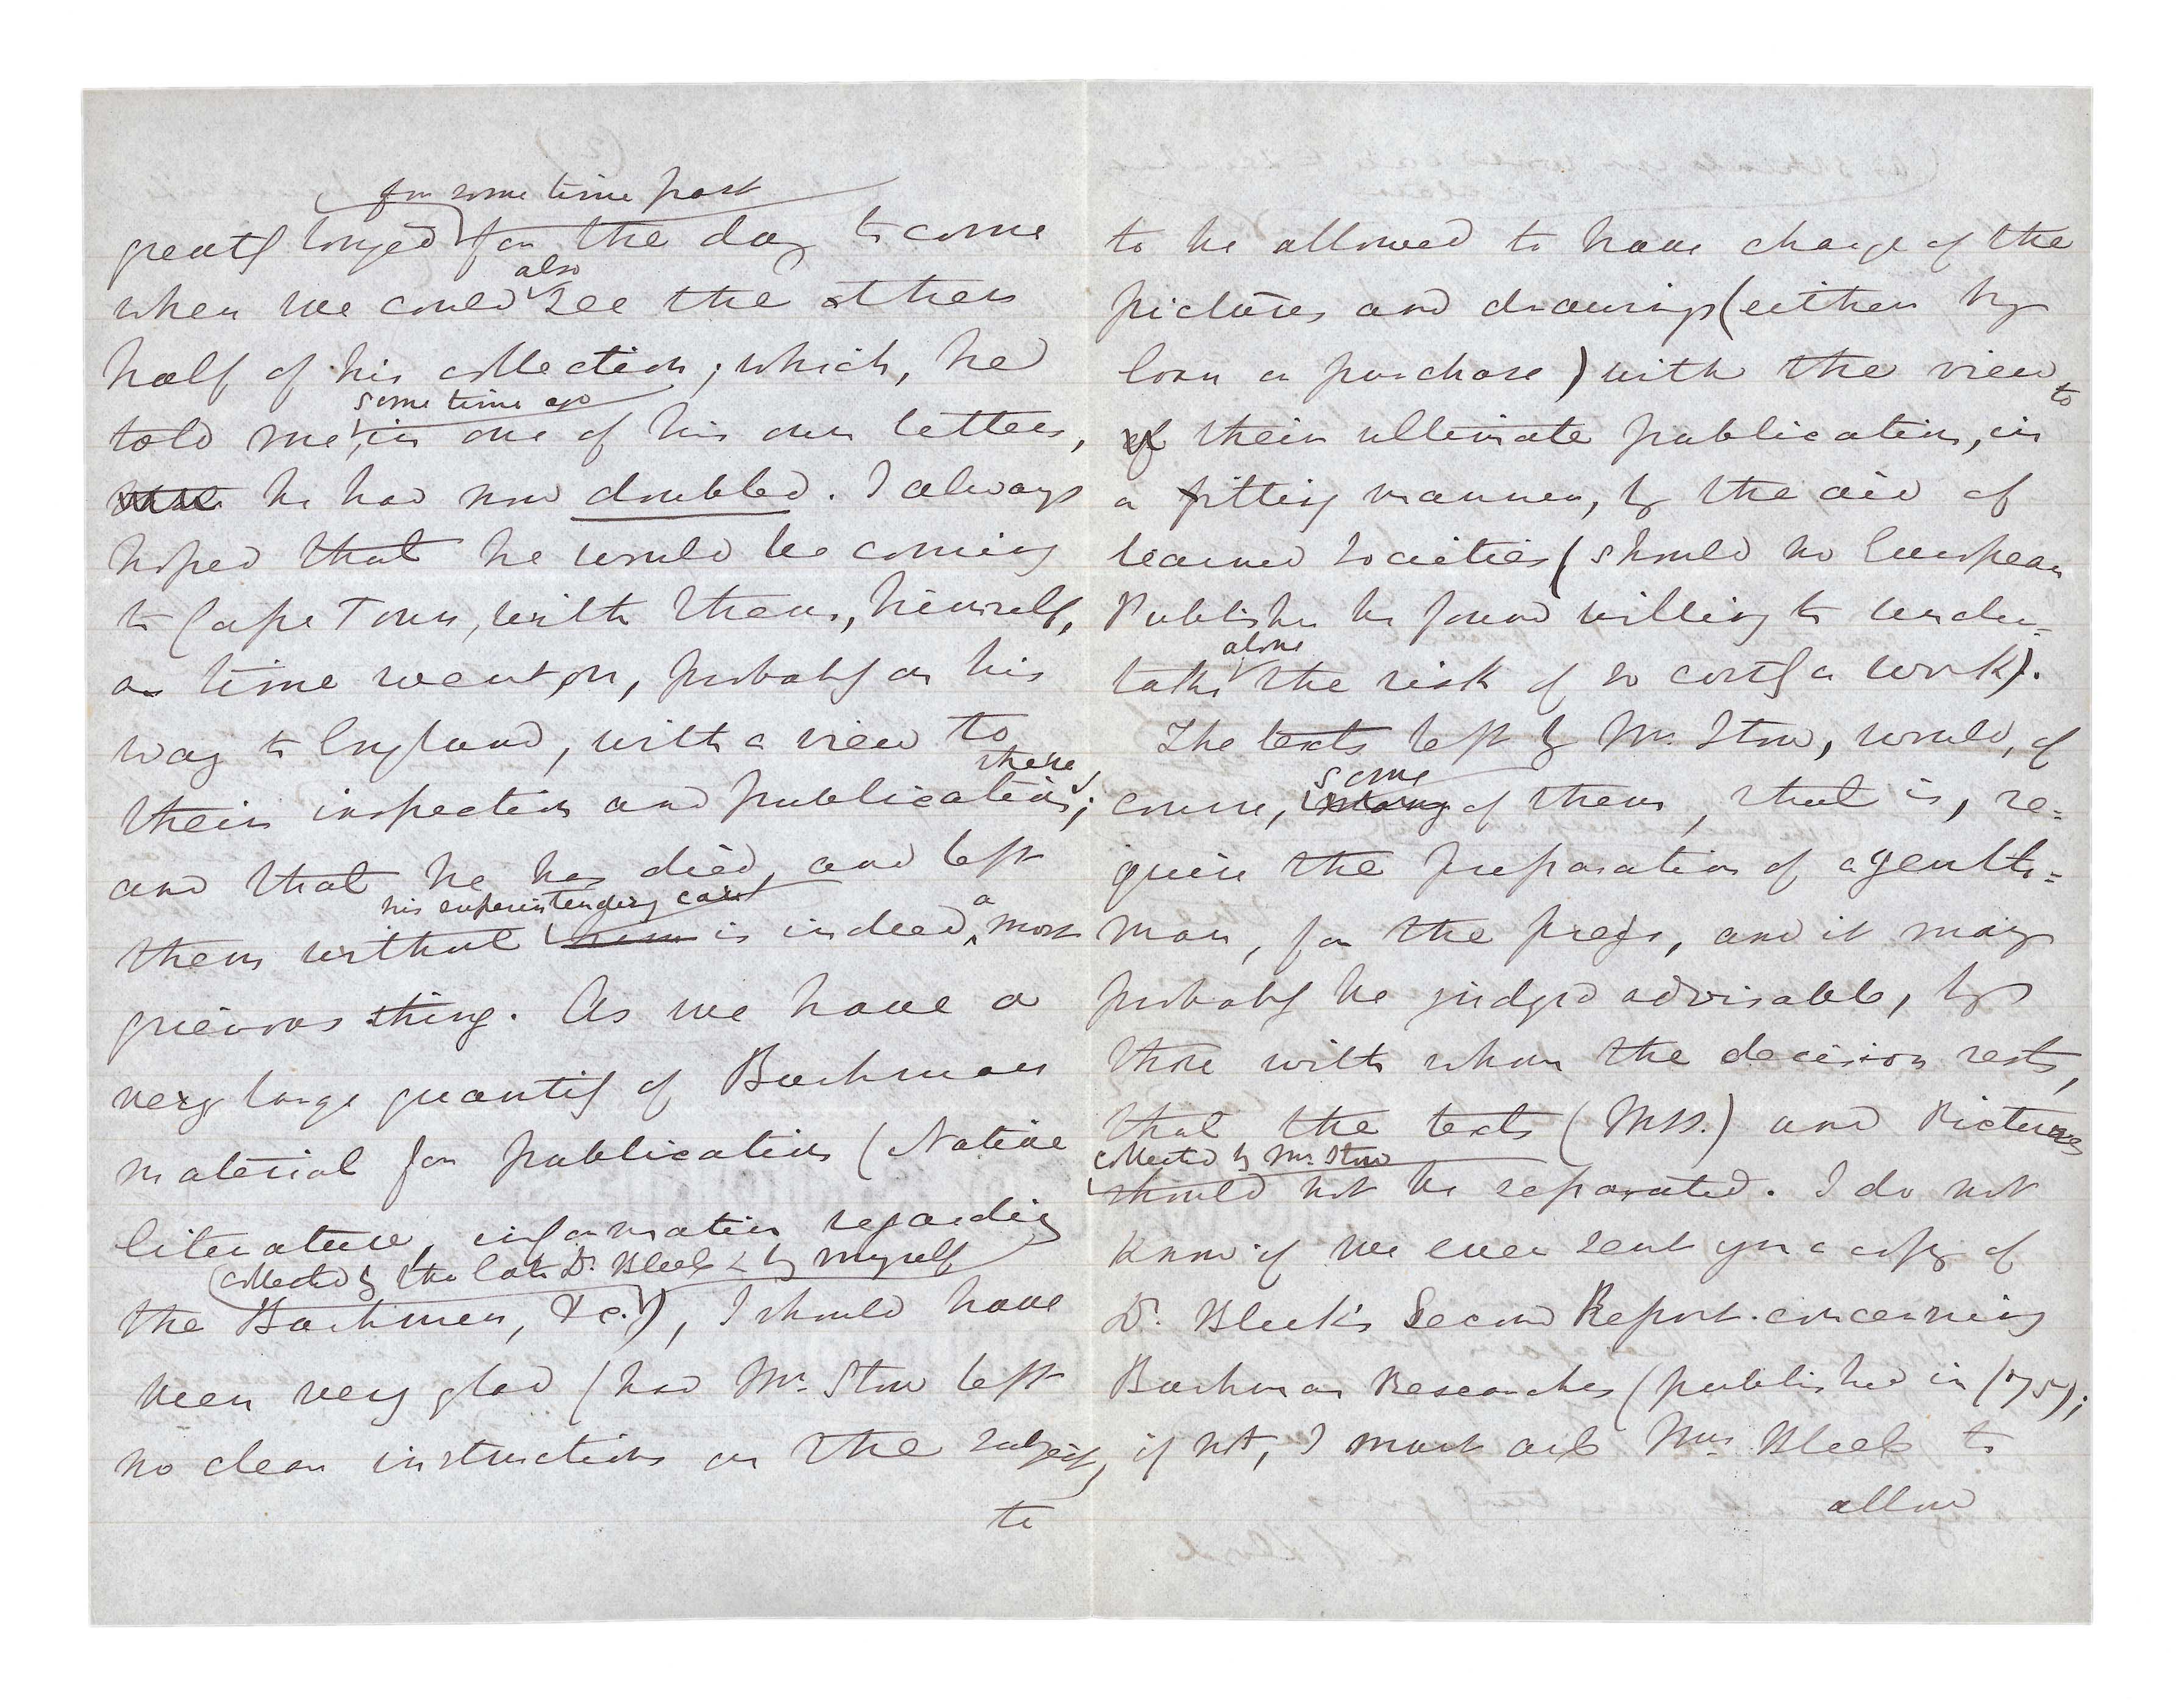 for some time past
greatly longed for the day to come
also
when we could see the other
half of his collection; which, he
some time ago
told me, in one of his own letters,
he had now doubled. I always
hoped that he would be coming
to Cape Town, with them, himself,
as time went on, probably on his
way to England, with a view to
there
their inspection and publication;
and that he has died, and left
his superintending care
them without him is indeed a most
grievous thing. As we have a
very large quantity of Bushman
material for publication (Native
literature, information regarding
collected by the late Dr. Bleek & by myself
the Bushmen, &c.), I should have
been very glad (had Mr. Stow left
no clear instructions on the subject)
to
to be allowed to have charge of the
pictures and drawings (either by
loan or purchase) with the view
to
of their ultimate publication, in
a fitting manner, by the aid of
learned Societies (should no European
Publisher be found willing to under=
alone
take the risk of so costly a work).
The texts left by Mr. Stow, would, of
some
course, many of them, that is, re=
quire the preparation of a gentle=
man, for the press, and it may
probably be judged advisable, by
those with whom the decision rests,
that the texts (MSS.) and Pictures
collected by Mr. Stow
should not be separated. I do not
know if we ever sent you a copy of
Dr. Bleek's Second Report concerning
Bushman Researches (published in /75);
if not, I must ask Mrs. Bleek to
allow